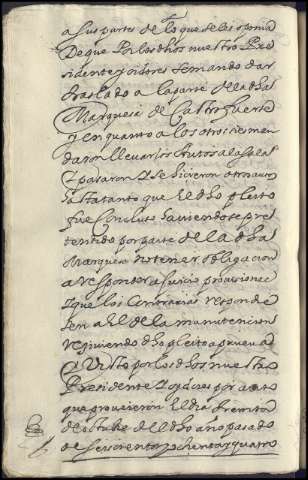 a sus partes de lo que se les oponia
De que Por los dhos nuestro Pre
sidente y oidores se mando dar
traslado a la parte de la dha
Marquesa de Castrofuerte
y en quanto a los otros se man
daron llevar los Autos a la sala
y pasaron y se hicieron otros autos
hasta tanto que el dho pleito
fue concluso haviendose pre
tendido por parte de la dha
Marquesa no tener obligacion
a responder a
y que los Contrarios responde
sen a el de la manutencion
siguiendo dho pleito a prueva
Visto por los dhos nuestro
Presidente y oydores por auto
que proveieron El dia treinta
de octubre de el dho año pasado
de seiscientos y ochenta y quatro